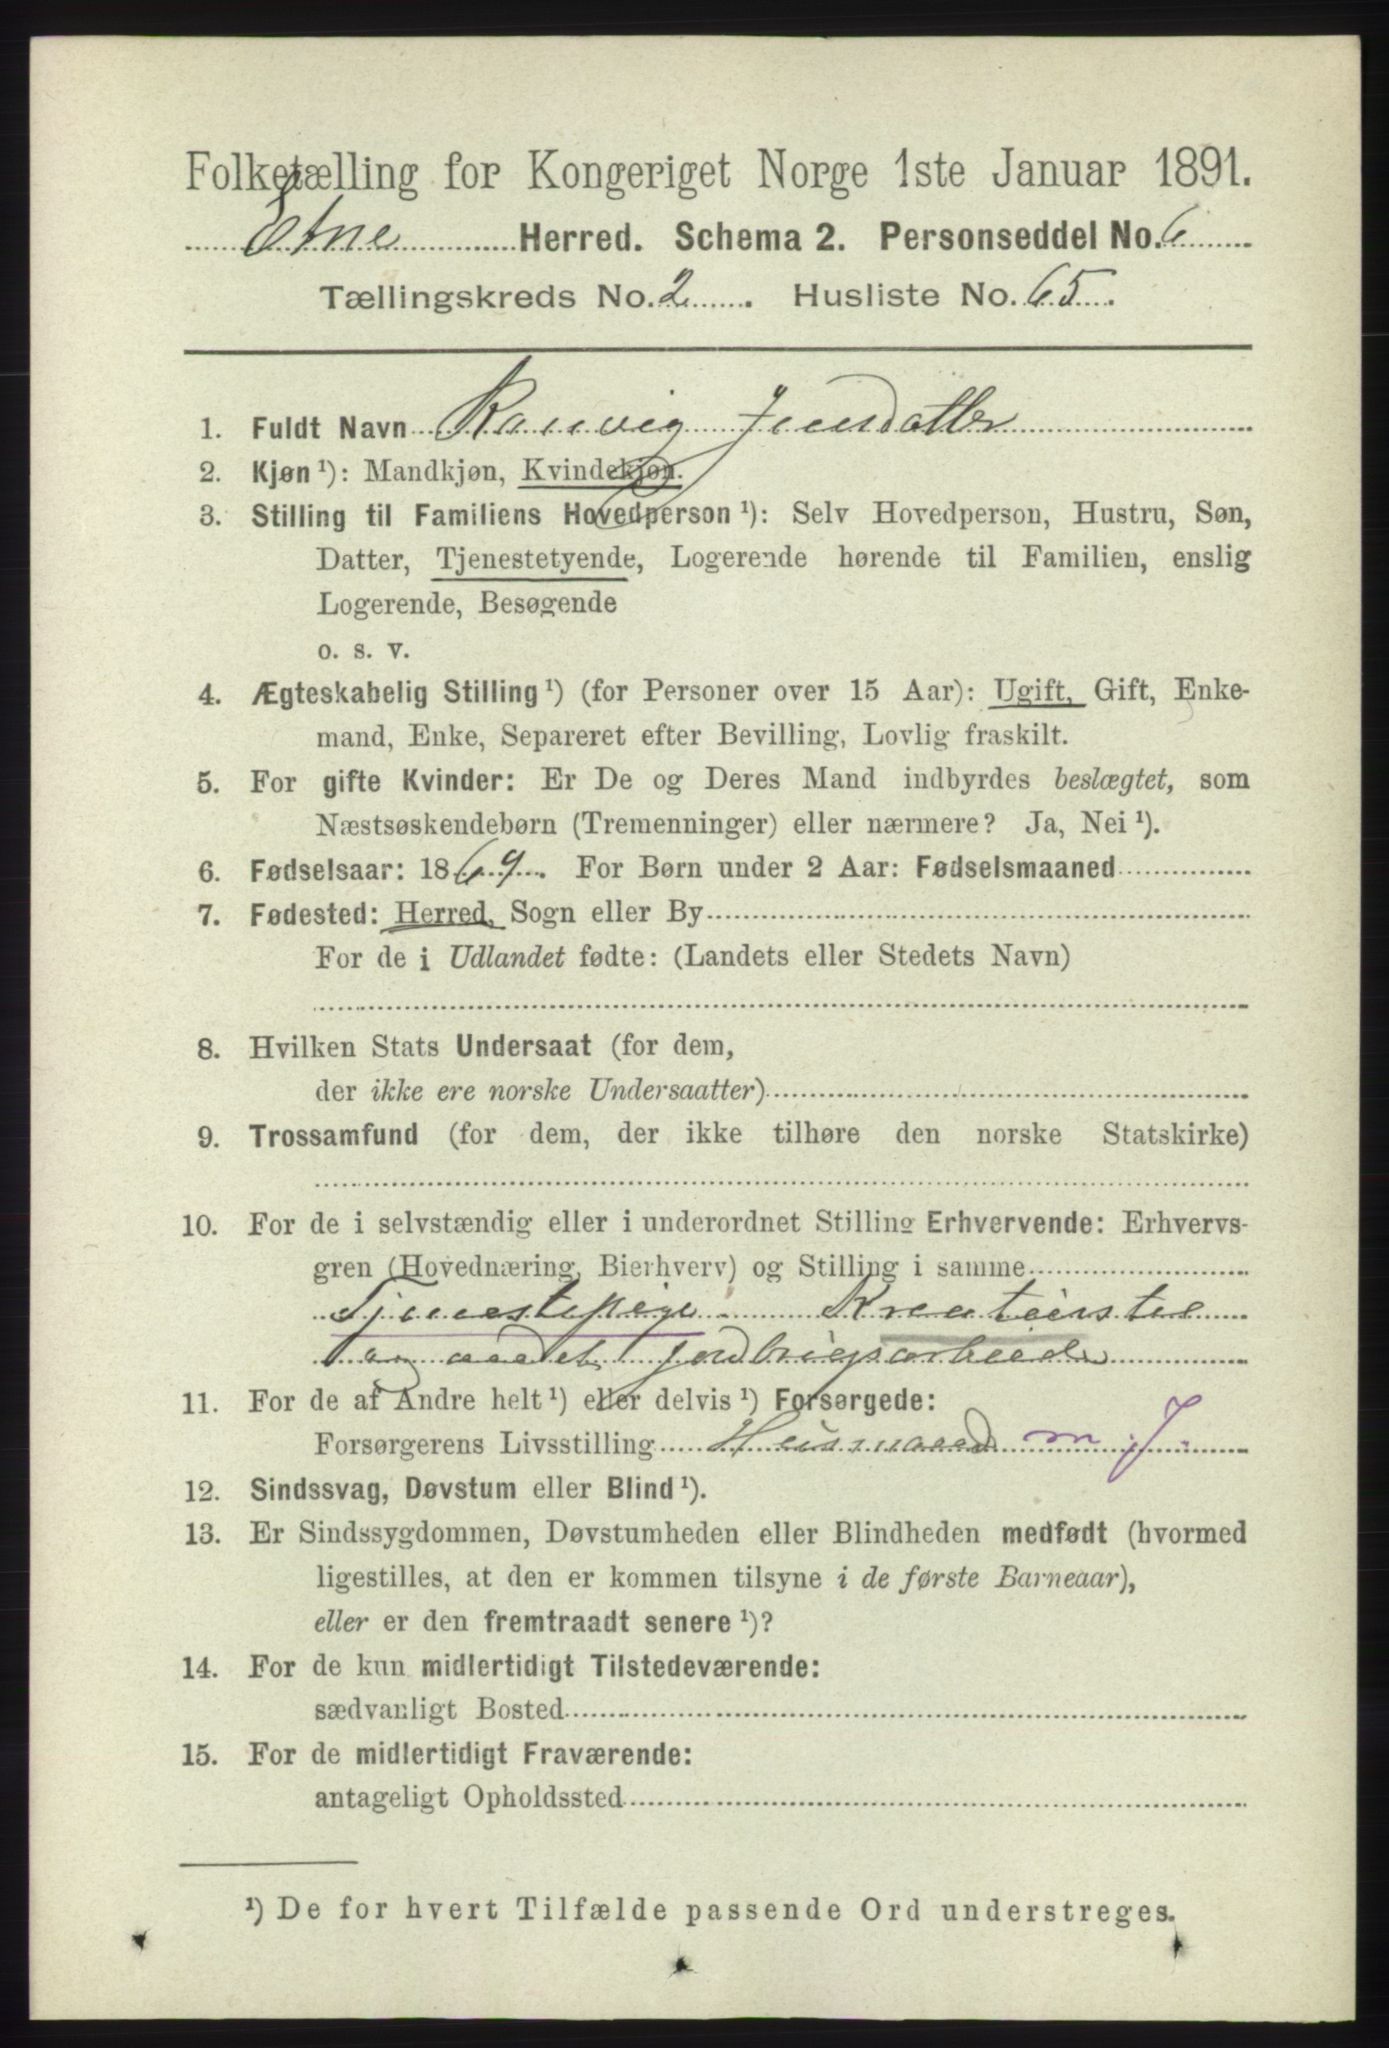 Folketælling for Kongeriget Norge 1ste Januar 1891.
Etne Herred. Schema 2. Personseddel No. 6
Tællingskreds No. 2. Husliste No. 65.
1. Fuldt Navn Ranvig Jensdatter
2. Kjøn ¹): Mandkjøn, Kvindekjøn.
3. Stilling til Familiens Hovedperson ¹): Selv Hovedperson, Hustru, Søn,
Datter, Tjenestetyende, Logerende hørende til Familien, enslig
Logerende, Besøgende
o. s. v.
4. Ægteskabelig Stilling ¹) (for Personer over 15 Aar): Ugift, Gift, Enke-
mand, Enke, Separeret efter Bevilling, Lovlig fraskilt.
5. For gifte Kvinder: Er De og Deres Mand indbyrdes beslægtet, som
Næstsøskendebørn (Tremenninger) eller nærmere? Ja, Nei ¹).
6. Fødselsaar: 1869. For Børn under 2 Aar: Fødselsmaaned
7. Fødested: Herred, Sogn eller By
For de i Udlandet fødte: (Landets eller Stedets Navn)
8. Hvilken Stats Undersaat (for dem,
der ikke ere norske Undersaatter)
9. Trossamfund (for dem, der ikke tilhøre den norske Statskirke)
10. For de i selvstændig eller i underordnet Stilling Erhvervende: Erhvervs-
gren (Hovednæring, Bierhverv) og Stilling i samme
Tjenestepige Kreaturstel
og andet jordbrugsarbeide
11. For de af Andre helt ¹) eller delvis ¹) Forsørgede:
Forsørgerens Livsstilling Husmand m. J.
12. Sindssvag, Døvstum eller Blind ¹).
13. Er Sindssygdommen, Døvstumheden eller Blindheden medfødt (hvormed
ligestilles, at den er kommen tilsyne i de første Barneaar),
eller er den fremtraadt senere ¹)?
14. For de kun midlertidigt Tilstedeværende:
sædvanligt Bosted
15. For de midlertidigt Fraværende:
antageligt Opholdssted
¹) De for hvert Tilfælde passende Ord understreges.